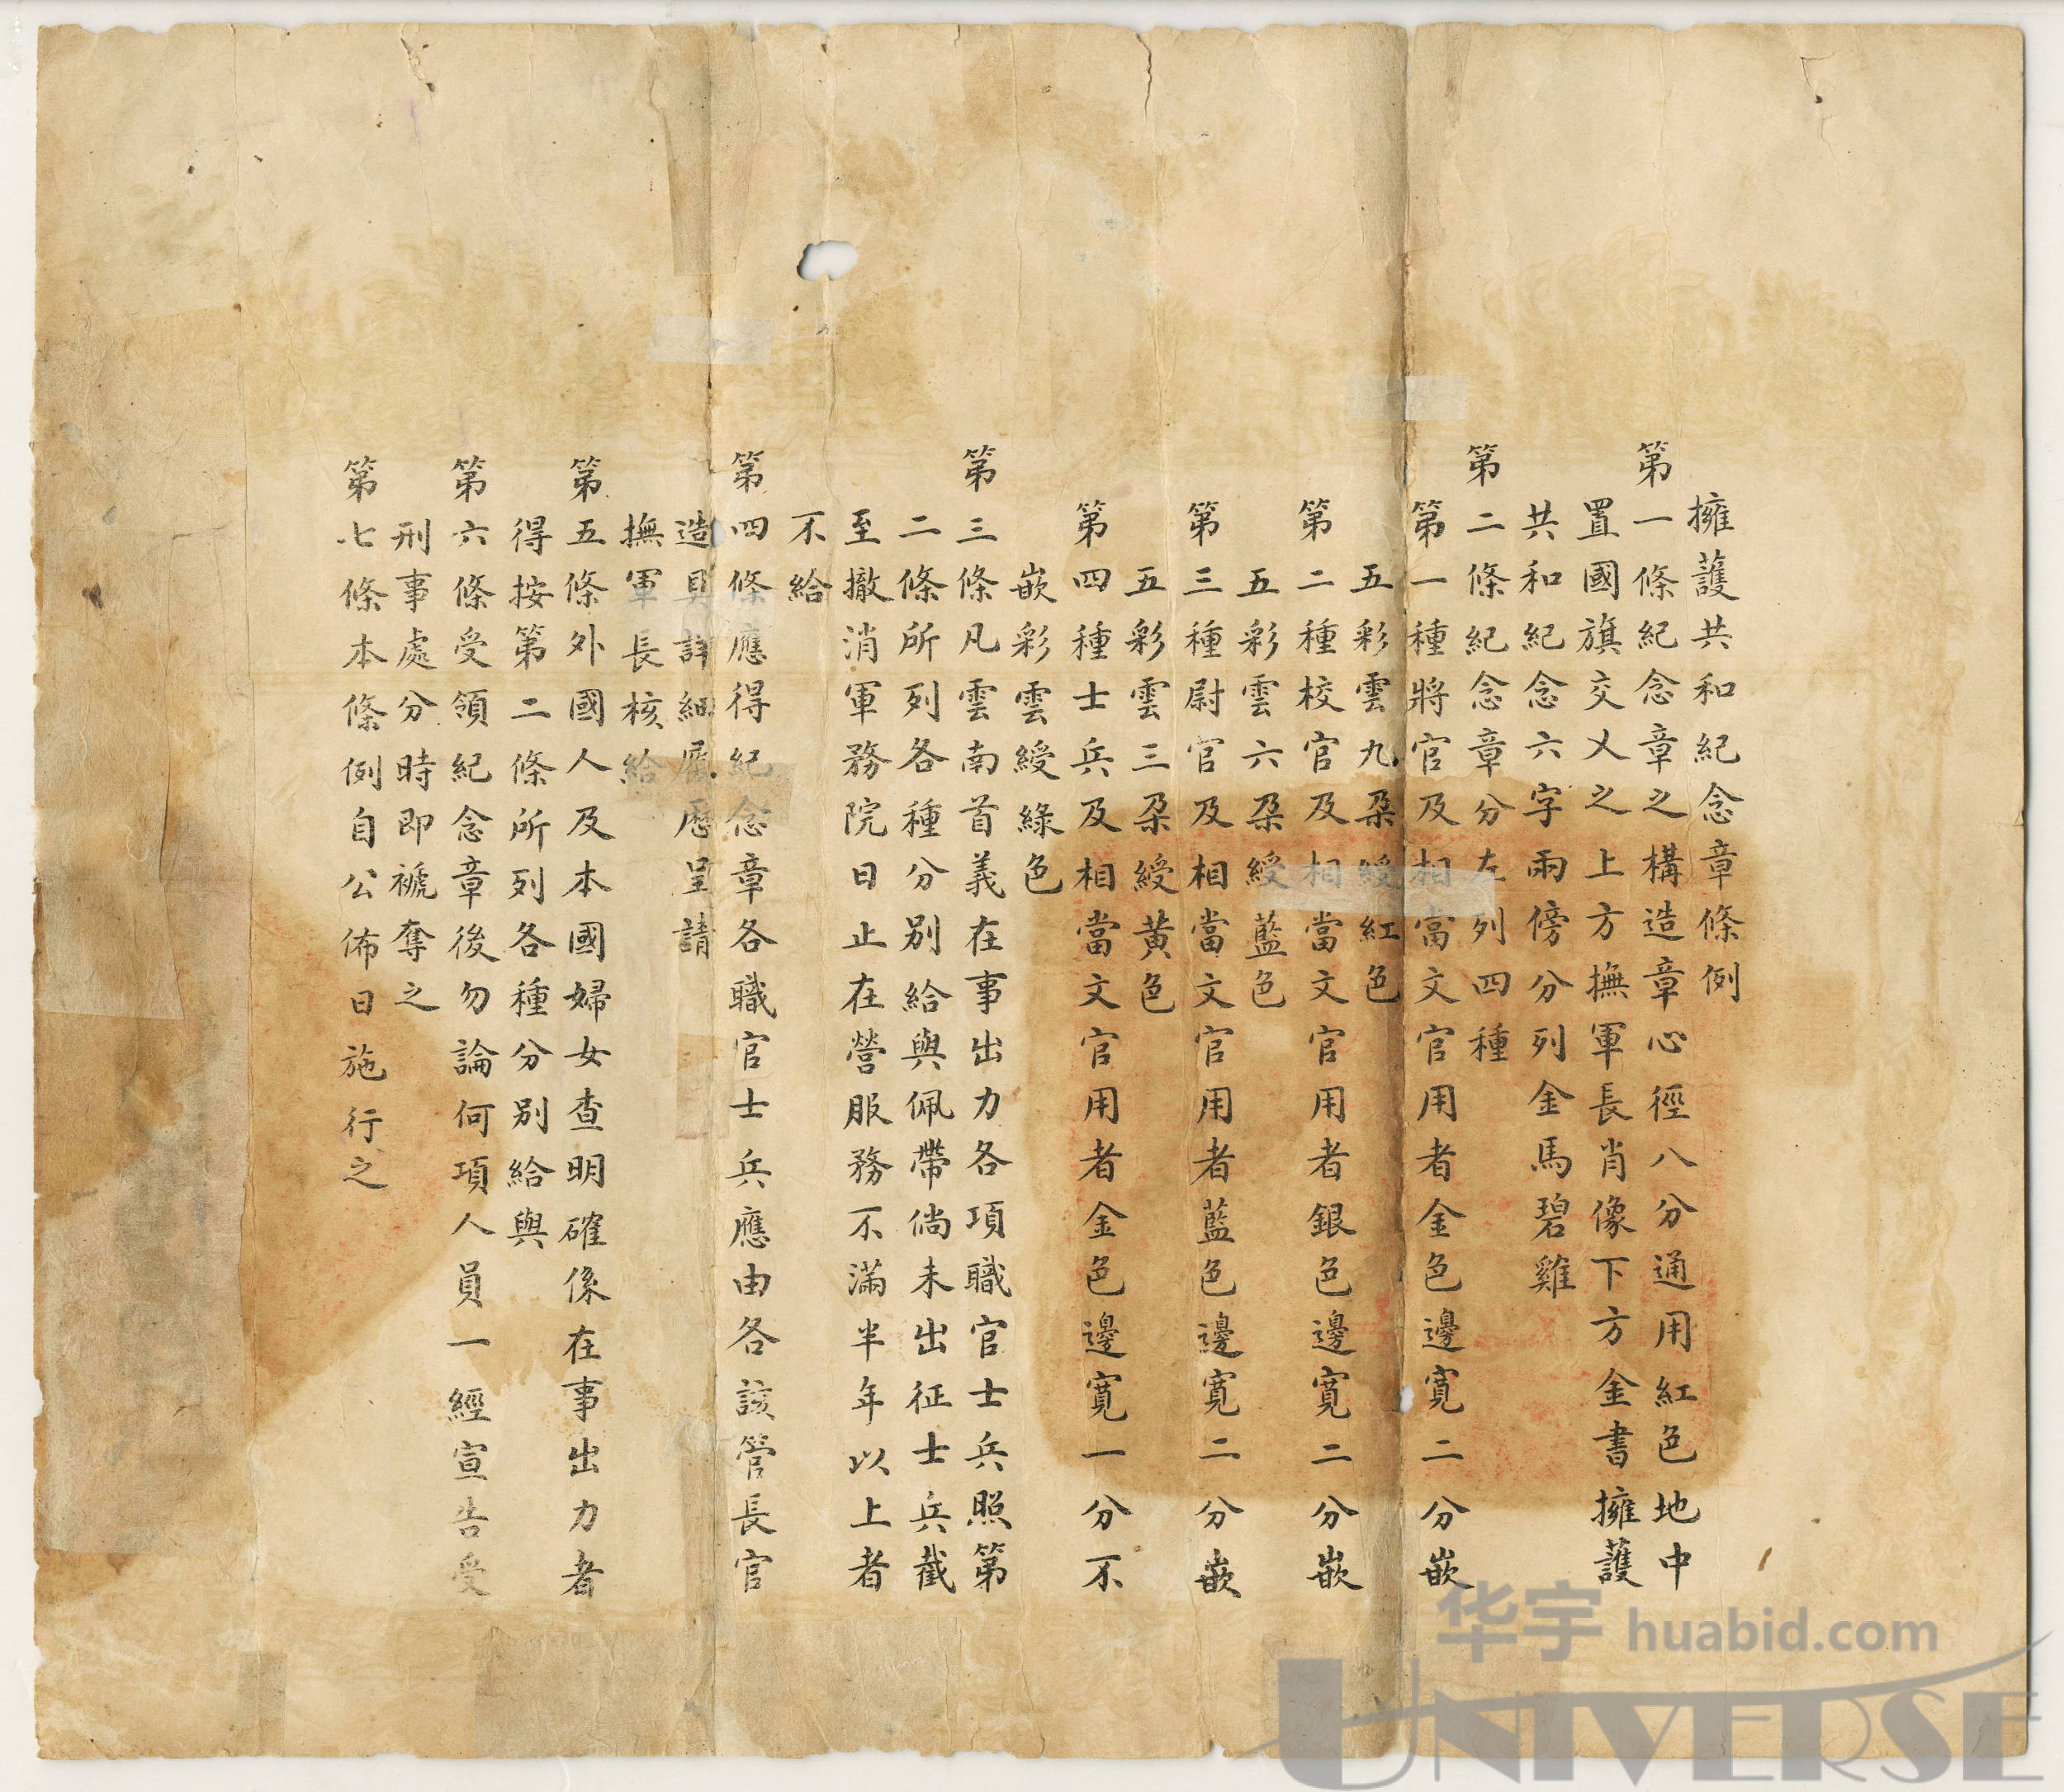 擁護共和紀念章條例
第一條紀念章之構造章心徑八分通用紅色地中
置國旗交乂之上方撫軍長肖像下方金書擁護
共和紀念六字兩傍分列金馬碧雞
第二條紀念章分左列四種
第一種將官及相當文官用者金色邊寬二分嵌
五彩雲九朶綬紅色
第二種校官及相當文官用者銀色邊寬二分嵌
五彩雲六朶綬藍色
第三種尉官及相當文官用者藍色邊寬二分嵌
五彩雲三朶綬黄色
第四種士兵及相當文官用者金色邊寬一分不
嵌彩雲綬綠色
第三條凡雲南首義在事出力各項職官士兵照第
二條所列各種分別給與佩帶倘未出征士兵截
至撤消軍務院日止在營服務不滿半年以上者
不給
第四條應得紀念章各職官士兵應由各該管長官
造具詳細履歷呈請
撫軍長核給
第五條外國人及本國婦女查明確係在事出力者
得按第二條所列各種分別給與
第六條受領紀念章後勿論何項人員一經宣告受
刑事處分時即褫奪之
第七條本條例自公佈日施行之
华宇 huabid.com
UNIVERSE